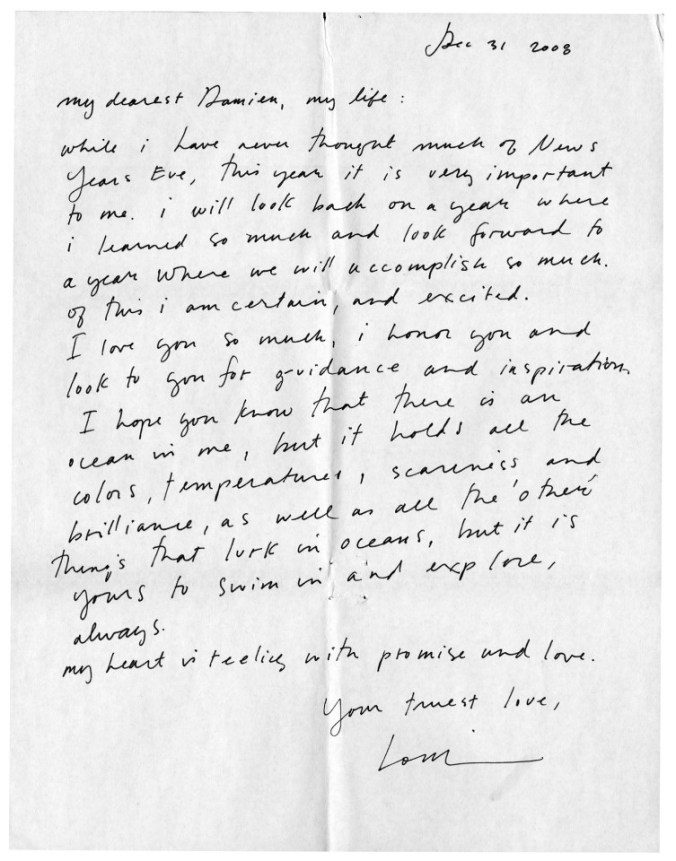 Dec 31 2008
my dearest Damien, my life:
while i have never thought much of News
Years Eve, this year it is very important
to me. i will look back on a year where
i learned so much and look forward to
a year where we will accomplish so much.
of this i am certain, and excited.
I love you so much, i honor you and
look to you for guidance and inspiration
I hope you know that there is an
ocean in me, but it holds all the
colors, temperatures, scareness, and
brilliance, as well as all the 'other'
things that lurk in oceans, but it is
yours to swim in and explore,
always.
my heart is with promise and love.
Your truest love,
Lorri